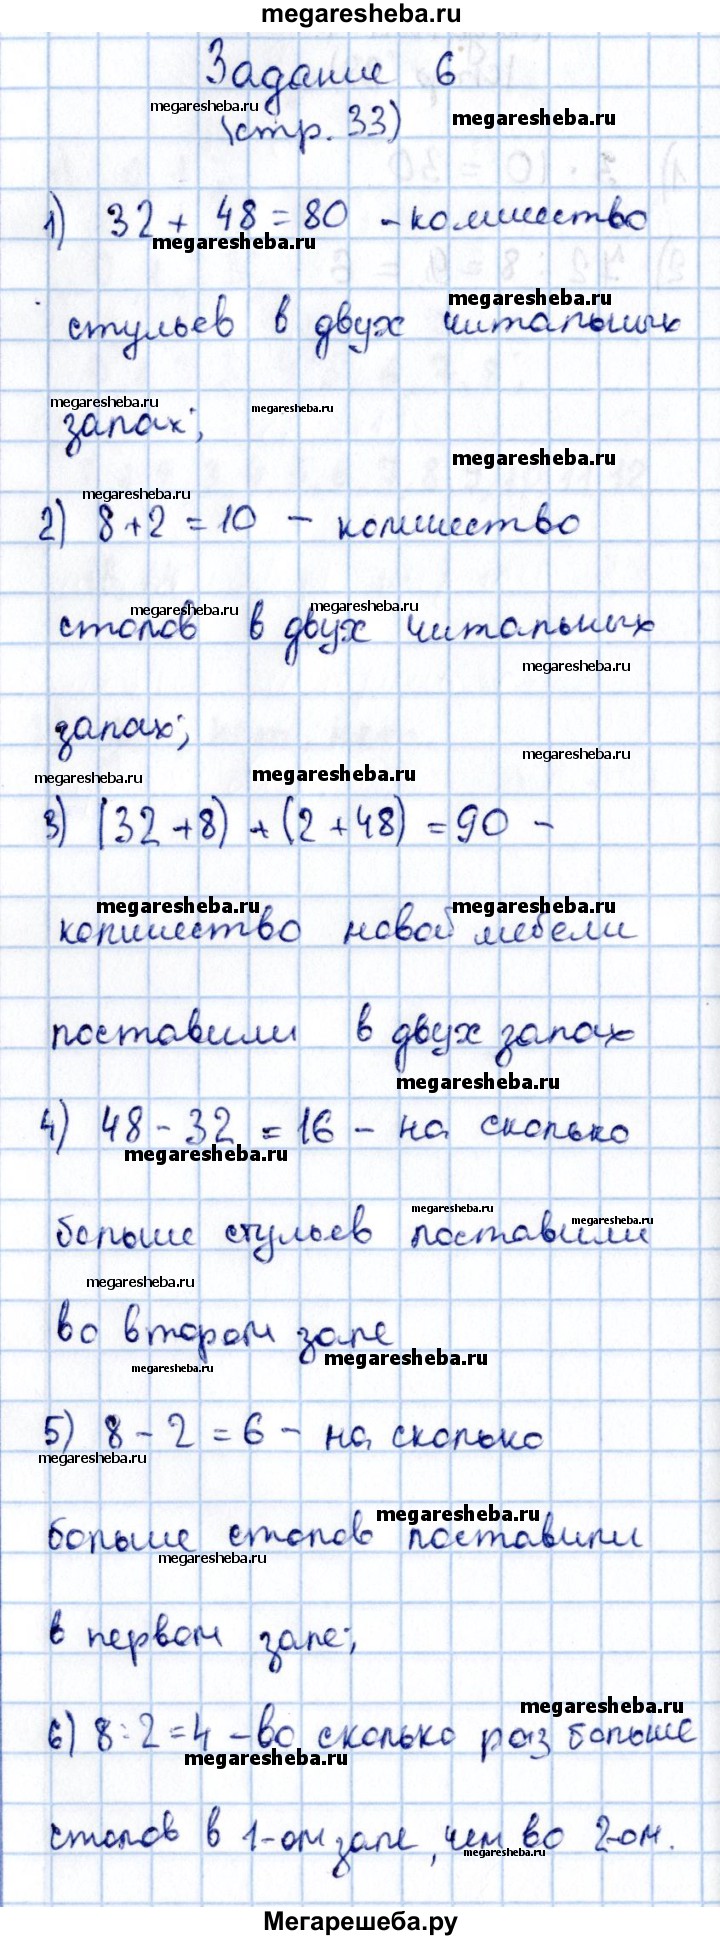 megaresheba.ru
Задание 6
megaresheba.ru megaresheba.ru
(стр. 33)
1) 32 + 48 = 80 - количество
megaresheba.ru
megaresheba.ru
стульев в двух читальных
megaresheba.ru megaresheba.ru
залах;
megaresheba.ru
megaresheba.ru
2) 8 + 2 = 10 - количество
megaresheba.ru megaresheba.ru
столов в двух читальных
megaresheba.ru
залах;
megaresheba.ru
megaresheba.ru megaresheba.ru
3) (32 + 8) + (2 + 48) = 90 -
megaresheba.ru megaresheba.ru
количество новой мебели
поставили в двух залах
megaresheba.ru
4) 48 - 32 = 16 - на сколько
megaresheba.ru
megaresheba.ru megaresheba.ru
больше стульев поставили
megaresheba.ru
во втором зале
megaresheba.ru megaresheba.ru
5) 8 - 2 = 6 - на сколько
megaresheba.ru
megaresheba.ru
больше столов поставили
megaresheba.ru
в первом зале;
megaresheba.ru
6) 8 : 2 = 4 - во сколько раз больше
megaresheba.ru
столов в 1-ом зале, чем во 2-ом.
megaresheba.ru
Мегарешеба.ру